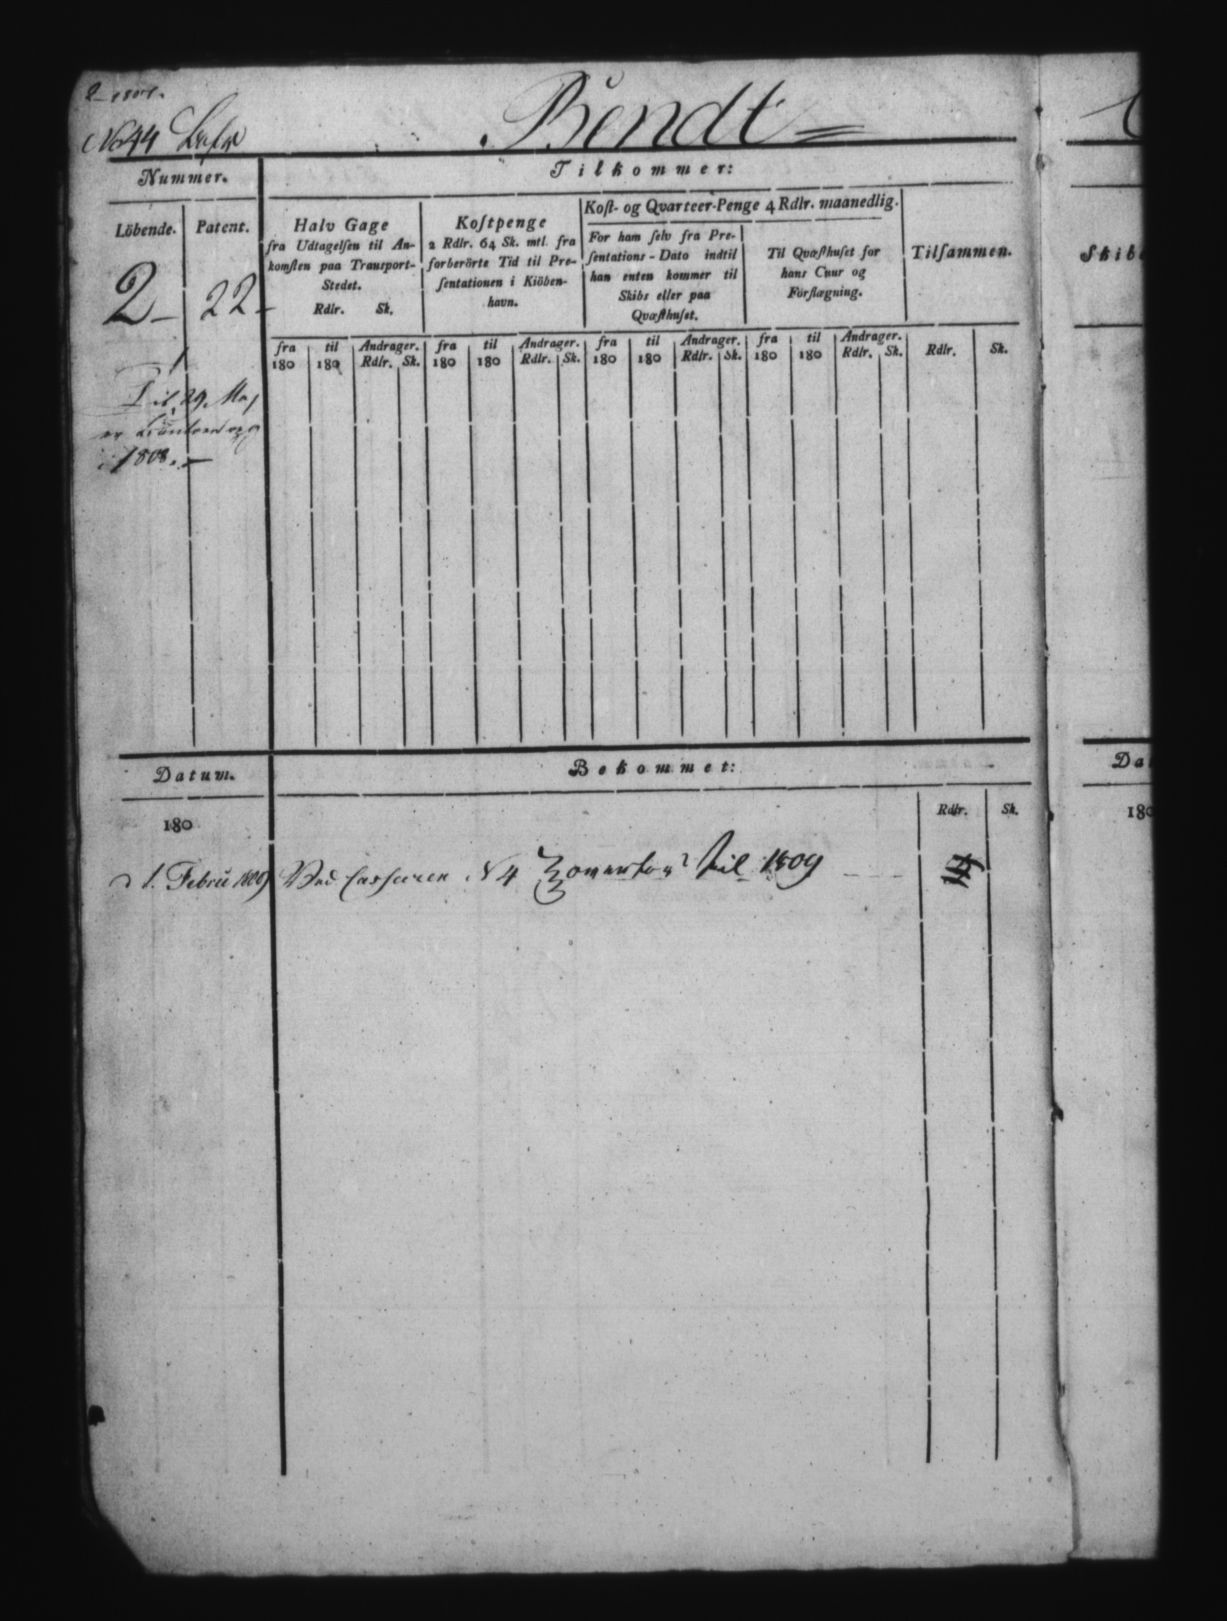 2 1807.
No 44 Bendt
Nummer.
Tilkommer:
Löbende. Patent.
2 22
Halv Gage
fra Udtagelſen til An-
komſten paa Transport-
Stedet.
Rdlr. Sk.
Koſtpenge
2 Rdlr. 64 Sk. mtl. fra
forberörte Tid til Pre-
ſentationen i Kiöben-
havn.
Koſt- og Qvarteer-Penge 4 Rdlr. maanedlig.
For ham ſelv fra Pre-
ſentations-Dato indtil
han enten kommer til
Skibs eller paa
Qvæſthuſet.
Til Qvæſthuſet for
hans Cuur og
Förſlægning.
Tilſammen.
fra til Andrager. fra til Andrager. fra til Andrager. fra til Andrager.
180 180 Rdlr. Sk. 180 180 Rdlr. Sk. 180 180 Rdlr. Sk. 180 180 Rdlr. Sk. Rdlr. Sk.
Til 29. Maj
er
1808.
Datum. Bekommet:
180 Rdlr. Sk.
1. Febru 1809 Ved N 4 til 1809 4
Skibs
Dat
180